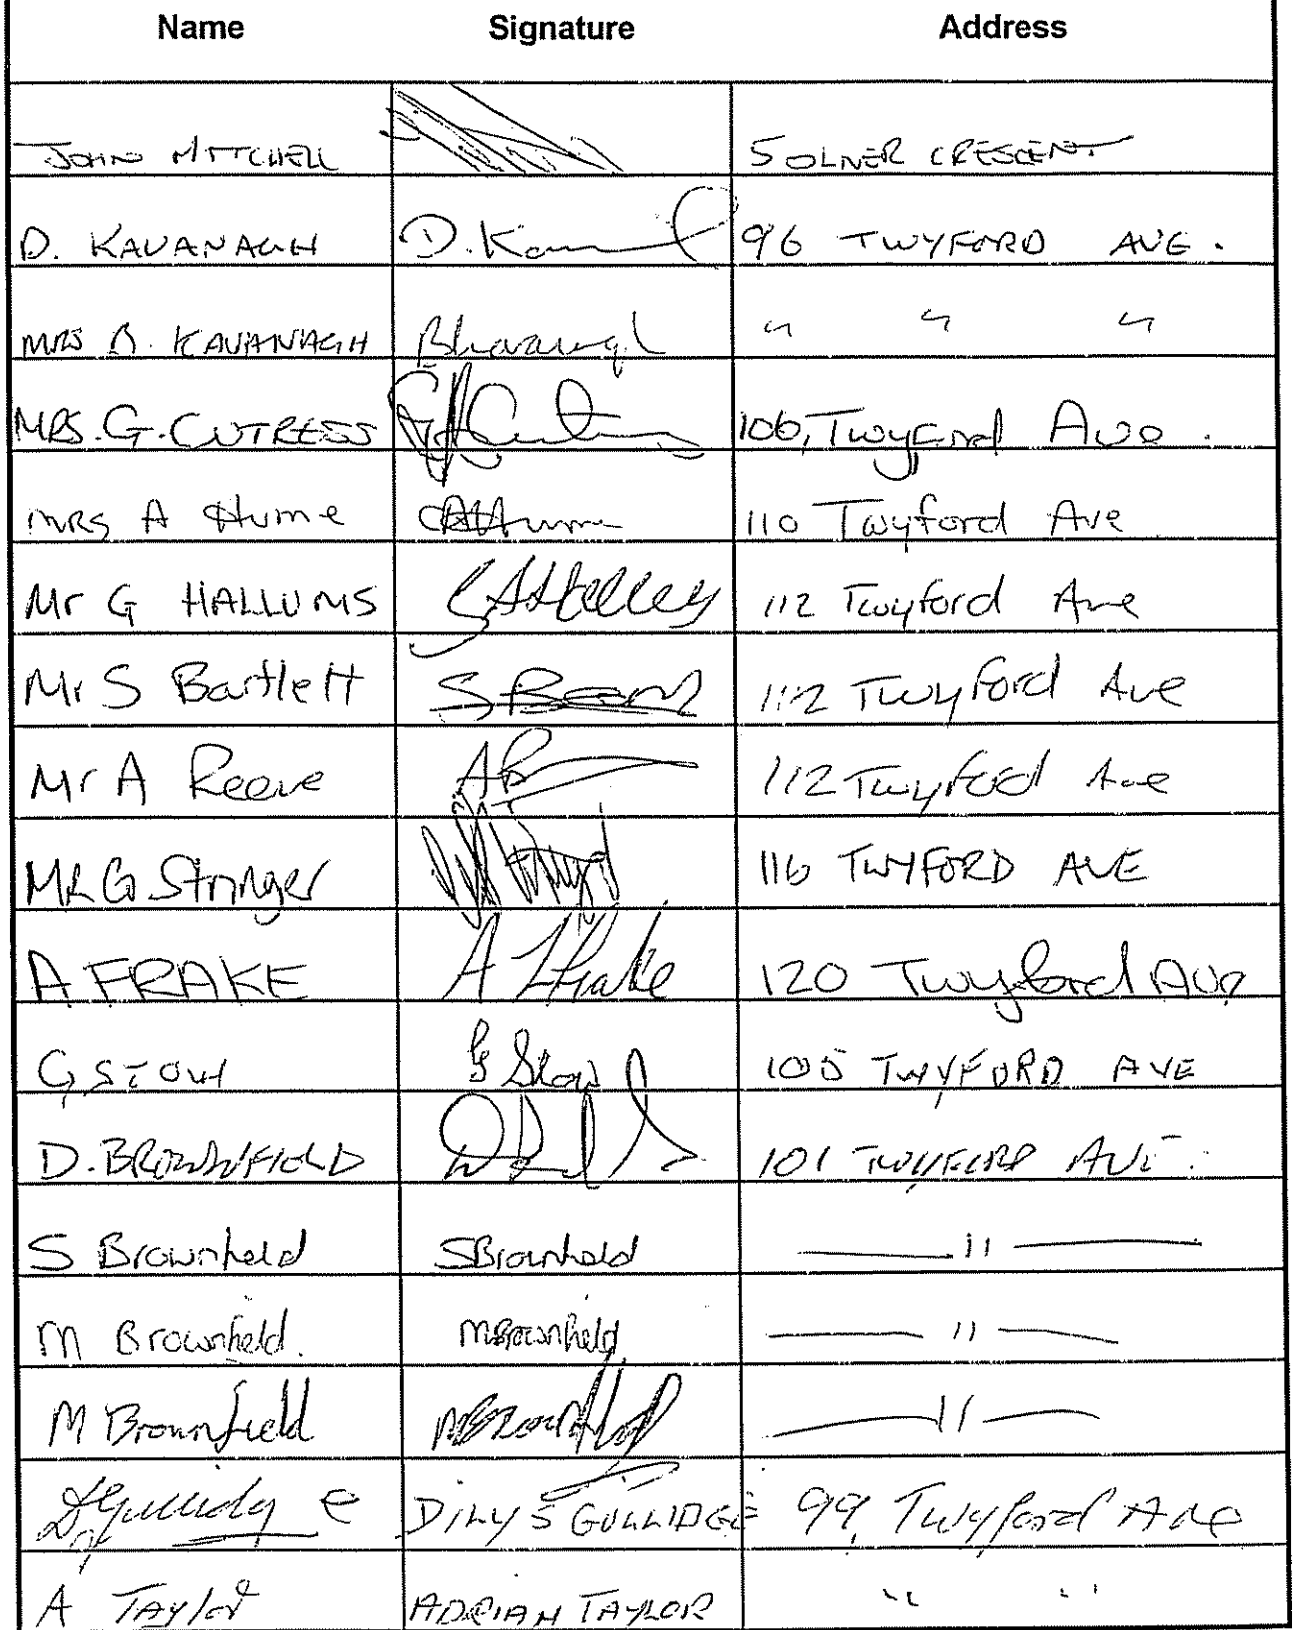 Name Signature Address
JOHN MITCHELL 5 OLNER CRESCENT
D. KAVANAGH D. Kav 96 TWYFORD AVE.
MRS B. KAVANAGH BKavanagh " " "
MRS. G. CUTRESS 106, Twyford Ave.
MRS A Hume AHume 110 Twyford Ave
Mr G HALLUMS 112 Twyford Ave
Mr S Bartlett 112 Twyford Ave
Mr A Reeve AR 112 Twyford Ave
MR G Stringer 116 TWYFORD AVE
A FRAKE A Frake 120 Twyford Ave
G STOW G Stow 105 TWYFORD AVE
D. BROWNFIELD 101 TWYFORD AVE.
S Brownfield SBrownfield — " —
M Brownfield. MBrownfield — " —
M Brownfield MBrownfield — " —
DGullidge DILYS GULLIDGE 99, Twyford Ave
A Taylor ADRIAN TAYLOR " "